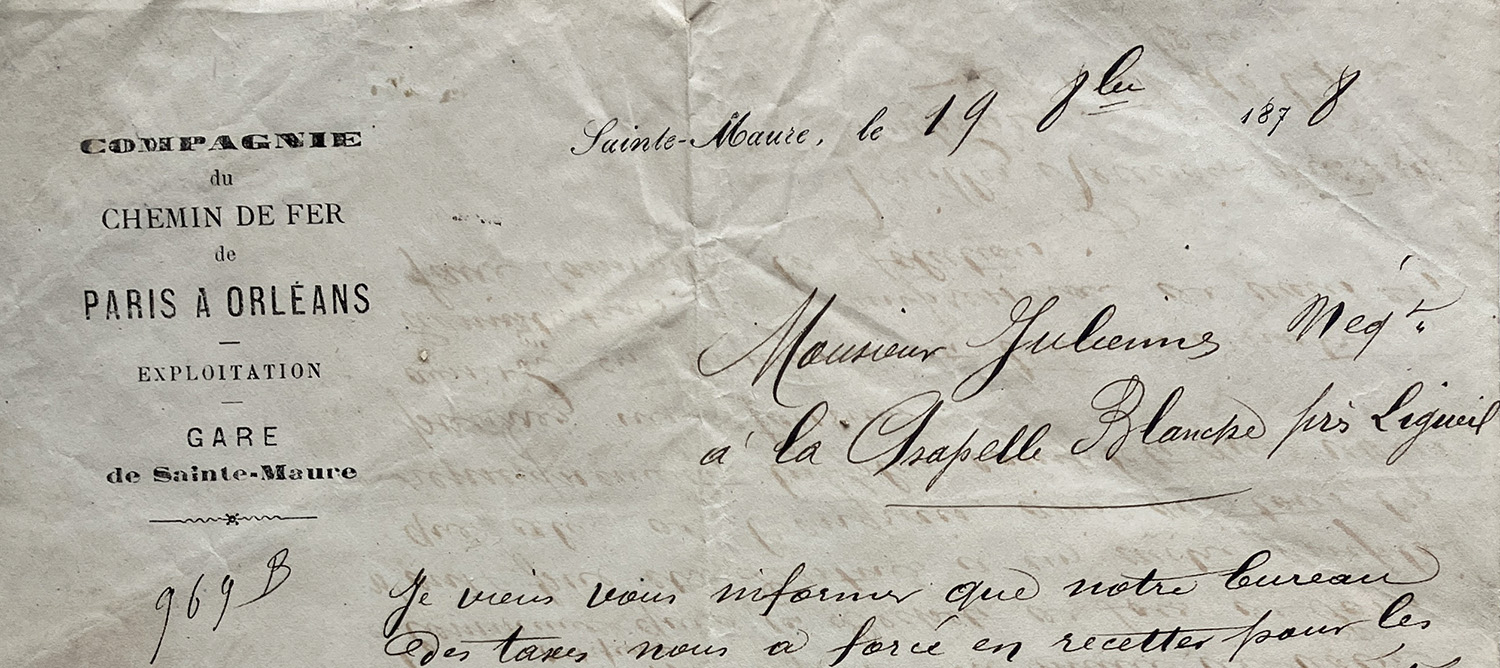 COMPAGNIE
du
CHEMIN DE FER
de
PARIS A ORLÉANS
EXPLOITATION
GARE
de Sainte-Maure
969 B
Sainte-Maure, le 19 8bre 1878
Monsieur Julienne Negt
à la Chapelle Blanche près Ligueil
Je viens vous informer que notre bureau
des taxes nous a forcé en recettes pour les